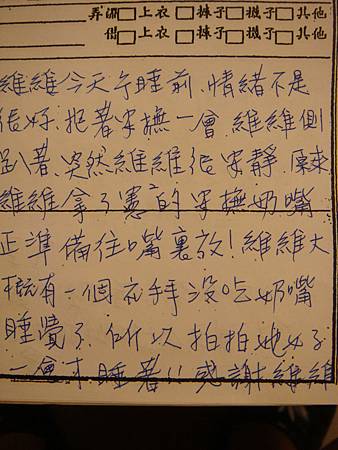 弄濕□上衣 □褲子 □襪子 □其他
借□上衣 □褲子 □襪子 □其他
維維今天午睡前,情緒不是
很好.抱著安撫一會.維維側
趴著.突然維維很安靜.原來
維維拿了憲憲的安撫奶嘴
正準備往嘴裏放!維維大
概有一個衣拜沒吃奶嘴
睡覺了.所以拍拍她好了
一會才睡著!!感謝維維